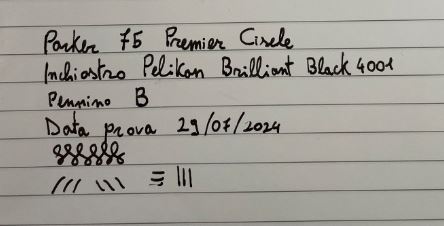 Parker 75 Premier Cisele
Inchiostro Pelikan Brilliant Black 4001
Pennino B
Data prova 29/07/2024